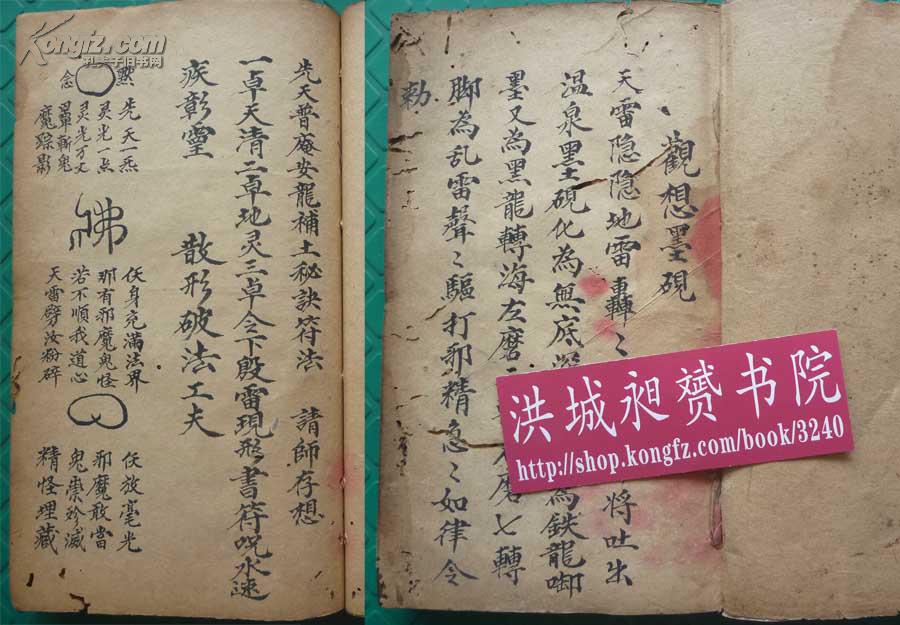 Kongfz.com
孔夫子旧书网
先天普庵安龍補土秘訣符法 請師存想
一卓天清二卓地灵三卓令下殷雷現形書符咒水速
疾彰靈 散形破法工夫
默念
先天一炁
灵光一点
灵光万丈
罩斬鬼
魔踪影
佛
伩身充滿法界
那有邪魔鬼怪
若不順我道心
天雷劈汝粉碎
伩放毫光
邪魔敢當
鬼祟殄滅
精怪埋藏
觀想墨硯
天雷隐隐地雷轟〻將吐出
温泉墨硯化為無底為鉄龍啣
墨又為黑龍轉海左磨磨七轉
脚為乱雷聲〻驅打邪精急〻如律令
勅
洪城昶赟书院
http://shop.kongfz.com/book/3240